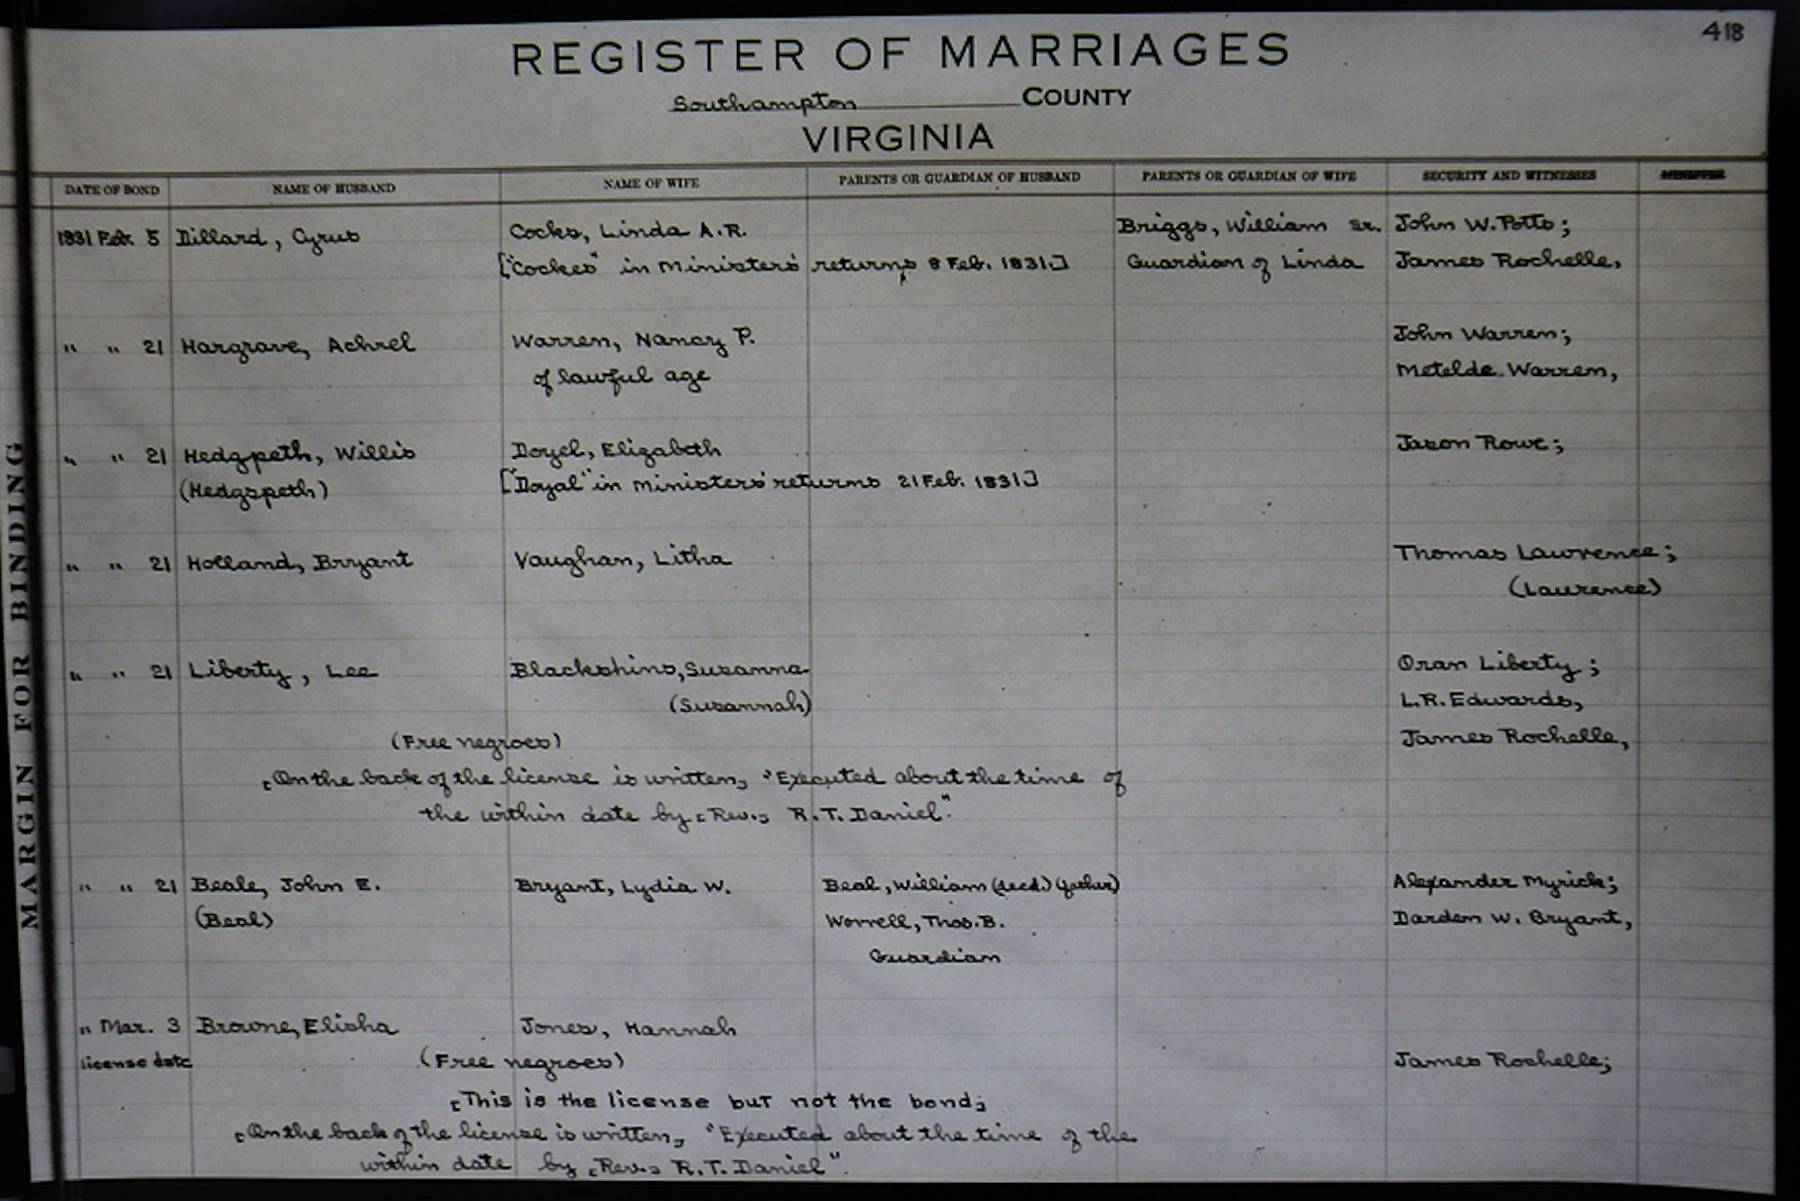 418
REGISTER OF MARRIAGES
Southampton COUNTY
VIRGINIA
MARGIN FOR BINDING
DATE OF BOND NAME OF HUSBAND NAME OF WIFE PARENTS OR GUARDIAN OF HUSBAND PARENTS OR GUARDIAN OF WIFE SECURITY AND WITNESSES MINISTER
1831 Feb. 5 Dillard, Cyrus Cocks, Linda A.R. Briggs, William Sr. John W. Potts;
["Cockes" in Ministers' returns 8 Feb. 1831.] Guardian of Linda James Rochelle,
" " 21 Hargrave, Achrel Warren, Nancy P. John Warren;
of lawful age Metelda Warren,
" " 21 Hedgpeth, Willis Doyel, Elizabeth Jason Rowe;
(Hedgspeth) ["Doyal" in Ministers' returns 21 Feb. 1831]
" " 21 Holland, Bryant Vaughan, Litha Thomas Lawrence;
(Laurence)
" " 21 Liberty, Lee Blackshins, Susanna Oran Liberty;
(Susannah) L.R. Edwards,
(Free negroes) James Rochelle,
[On the back of the license is written] "Executed about the time of
the within date by [Rev.] R.T. Daniel".
" " 21 Beale, John E. Bryant, Lydia W. Beal, William (decd.) (father) Alexander Myrick;
(Beal) Worrell, Thos. B. Darden W. Bryant,
Guardian
" Mar. 3 Browne, Elisha Jones, Hannah
license date (Free negroes) James Rochelle;
[This is the license but not the bond;
[On the back of the license is written] "Executed about the time of the
within date by [Rev.] R.T. Daniel".